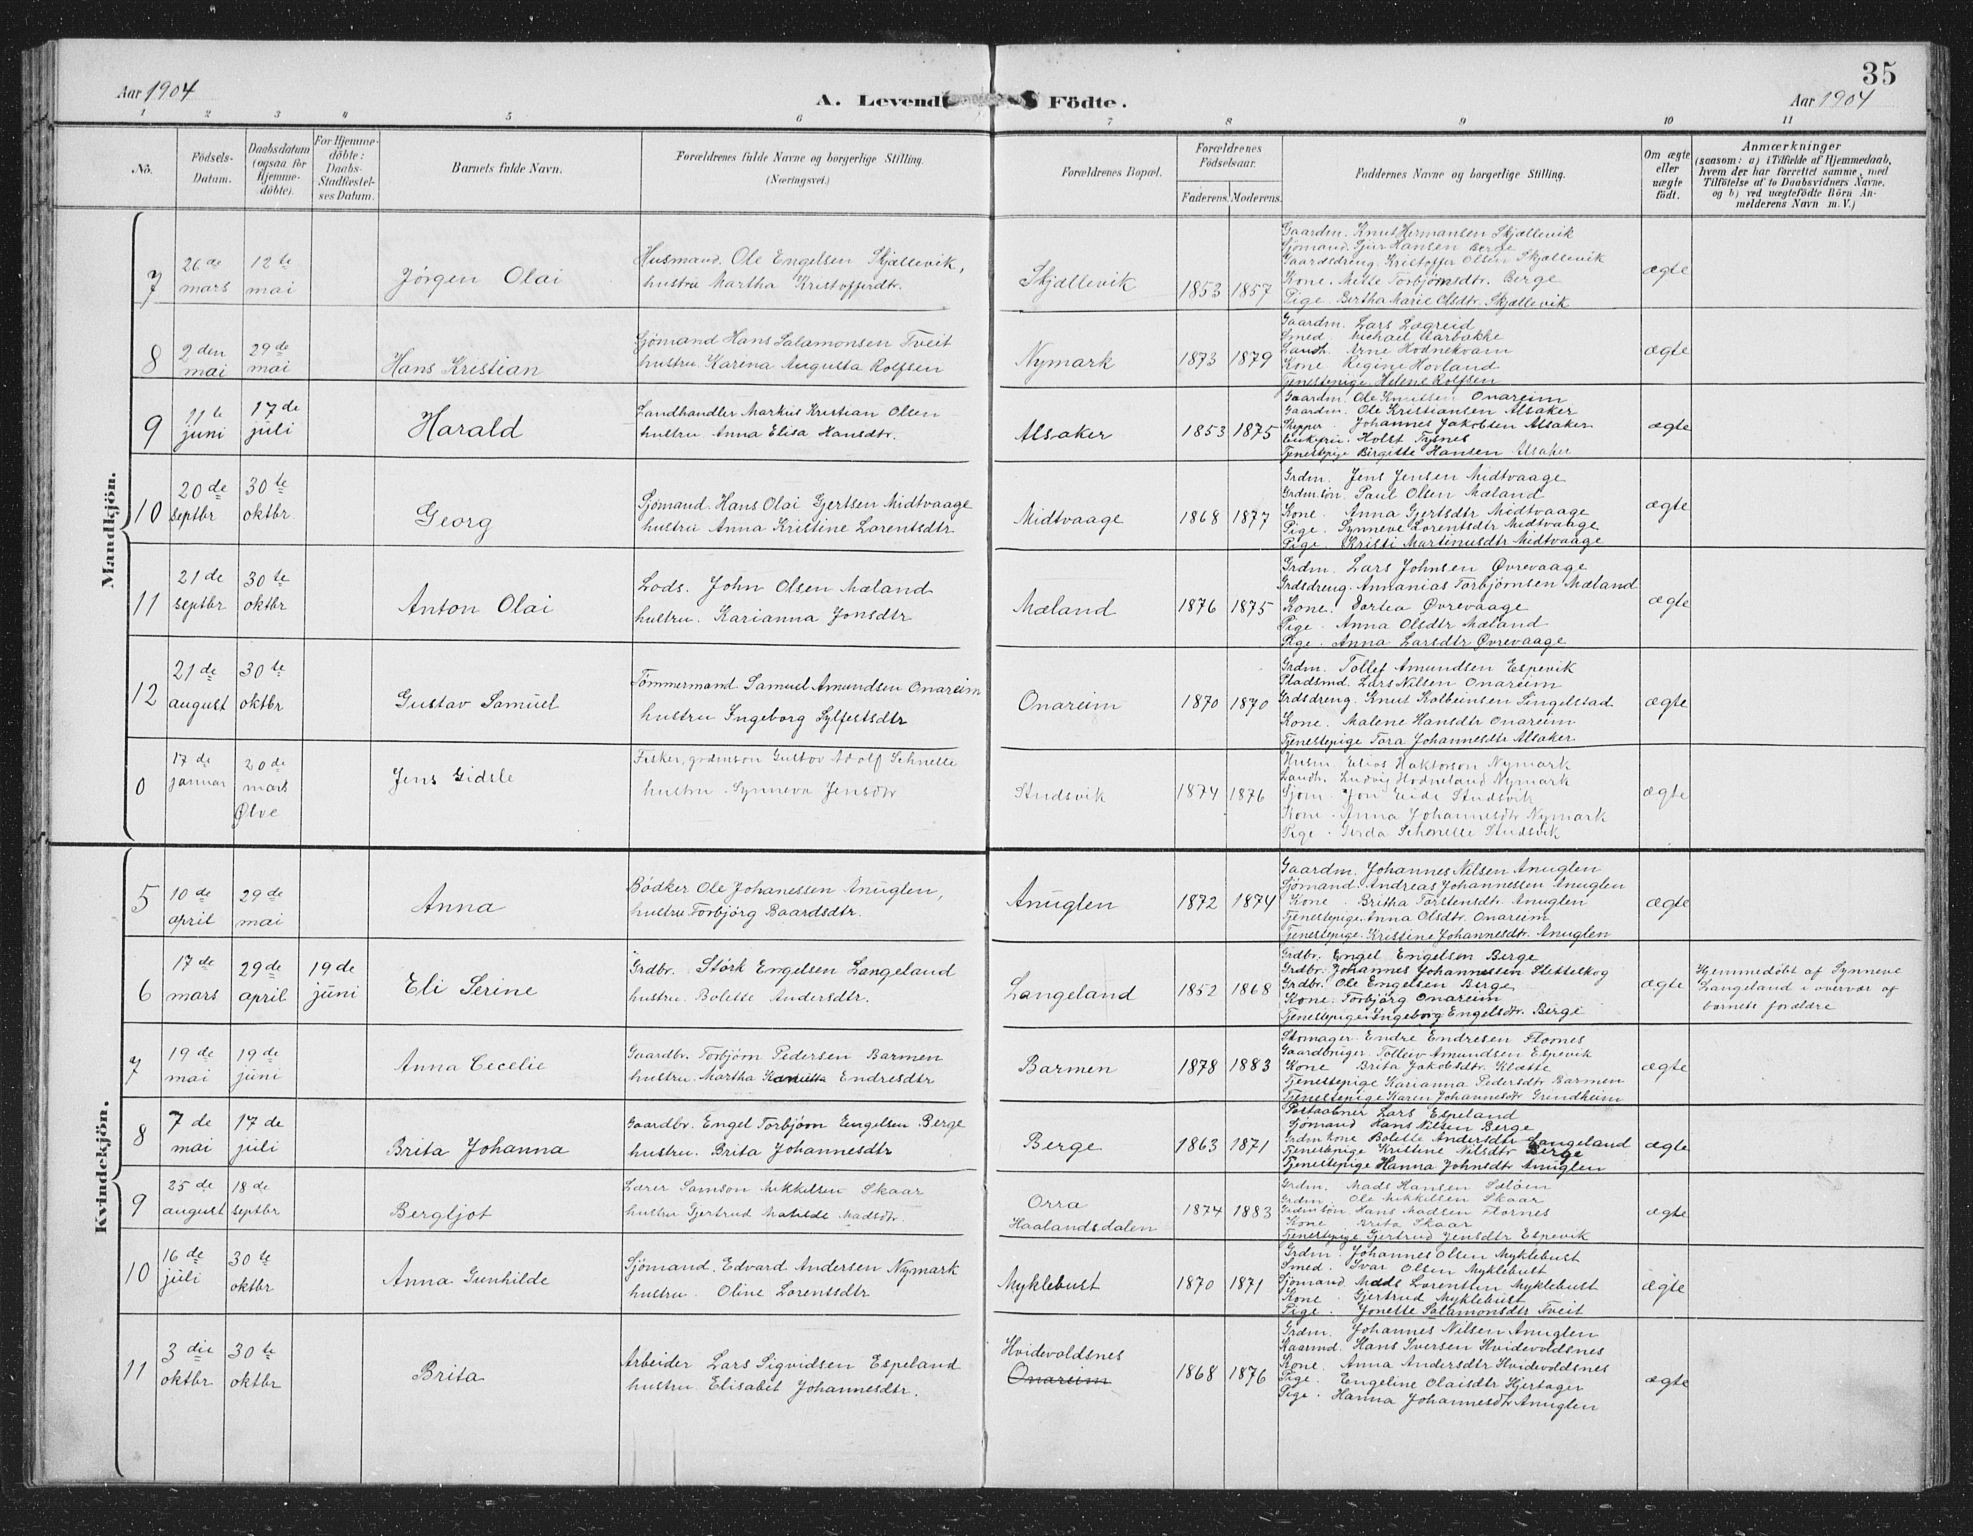 Aar 1904
A. Levende Födte.
35
Aar 1904
1 2 3 4 5 6 7 8 9 10 11
No.
Födsels-Datum.
Daabsdatum (ogsaa for Hjemmedöbte).
For Hjemmedöbte: Daabs-Stadfæstelses Datum.
Barnets fulde Navn.
Forældrenes fulde Navne og borgerlige Stilling. (Næringsvei.)
Forældrenes Bopæl.
Forældrenes Födselsaar.
Faderens. Moderens.
Faddernes Navne og borgerlige Stilling.
Om ægte eller uægte födt.
Anmærkninger
(saasom: a) i Tilfælde af Hjemmedaab, hvem der har forrettet samme, med Tilföielse af to Daabsvidners Navne, og b) ved uægtefödte Börn Anmelderens Navn m. V.)
Mandkjön.
7
26de mars
12te mai
Jørgen Olai
Husmand. Ole Engelsen Skjællevik,
hustru Martha Kristofferdtr.
Skjællevik
1853 1857
Gaardm. Knut Hermansen Skjællevik
Sjömand. Sjur Hansen Berge
Gaardsdreng. Kristoffer Olsen Skjællevik
Kone. Mette Torbjørnsdtr. Berge
Pige. Bertha Marie Olsdtr. Skjællevik
ægte
8
2den mai
29de mai
Hans Kristian
Sjømand Hans Salamonsen Tveit
hustru Karina Augusta Rolfsen
Nymark
1873 1879
Gaardm. Lars Lægreid
Smed. Michael Aarbakke
Landh. Arne Hodnekvam
Kone Regine Hovland
Tjenestepige. Helene Rolfsen
ægte
9
11te juni
17de juli
Harald
Landhandler Markus Kristian Olsen
hustru Anna Elisa Hansdtr.
Alsaker
1853 1875
Gaardm. Ole Knutsen Onareim
Gaardm. Ole Kristiansen Alsaker
Skipper. Johannes Jakobsen Alsaker
Holst Tysnes
Tjenestepige Birgitte Hansen Alsaker
ægte
10
20de septbr
30te oktbr
Georg
Sjømand. Hans Olai Gjertsen Midtvaage
hustru Anna Kristine Lorentsdtr
Midtvaage
1868 1877
Grdm. Jens Jensen Midtvaage
Grdmsön. Paul Olsen Mæland
Kone. Anna Gjertsdtr Midtvaage
Pige. Synneve Lorentsdtr Midtvaage
Pige. Kristi Martinusdtr Midtvaage
ægte
11
21de septbr
30te oktbr
Anton Olai
Lods. John Olsen Mæland
hustru. Karianna Jonsdtr
Mæland
1876 1875
Grdm. Lars Johnsen Øvrevaage
Grdsdreng. Annanias Torbjørnsen Mæland
Kone. Dortea Øvrevaage
Pige. Anna Olsdtr Mæland
Pige. Anna Larsdtr Øvrevaage
ægte
12
21de august
30te oktbr
Gustav Samuel
Tømmermand Samuel Amundsen Onareim
hustru Ingeborg Sylfestsdtr
Onareim
1870 1870
Grdm. Tollef Amundsen Espevik
Pladsmd. Lars Nilsen Onareim
Grdsdreng. Knut Kolbeinsen Singelstad
Kone. Malene Hansdtr Onareim
Tjenestepige Tora Johannesdtr Alsaker
ægte
0
17de januar
20de mars Ølve
Jens Gidsle
Fisker, grdmson Gustav Adolf Schnelle
hustru. Synneva Jensdtr
Studsvik
1874 1876
Husm Elias Haktorson Nymark
Landh. Ludvig Hodneland Nymark
Sjöm. Jon Eide Studsvik
Kone. Anna Johannesdtr Nymark
Pige. Gerda Schnelle Studsvik
ægte
Kvindekjön.
5
10de april
29de mai
Anna
Bødker Ole Johanessen Anuglen,
hustru Torbjörg Baardsdtr.
Anuglen
1872 1874
Gaardm. Johannes Nilsen Anuglen
Sjömand. Andreas Johannessen Anuglen
Kone. Britha Torstensdtr. Anuglen
Tjenestepige. Anna Olsdtr. Onareim
Tjenestepige. Kristine Johannesdtr. Anuglen
ægte
6
17de mars
29de april
19de juni
Eli Serine
Grdbr. Störk Engelsen Langeland
hustru. Bolette Andersdtr.
Langeland
1852 1868
Grdbr. Engel Engelsen Berge
Grdbr. Johannes Johannessen Slettekog
Grdbr. Ole Engelsen Berge
Kone. Torbjörg Onareim
Tjenestepige. Ingeborg Engelsdtr. Berge
ægte
Hjemmedöbt af Synneve
Langeland i overvær af
barnets forældre
7
19de mai
19de juni
Anna Cecelie
Gaardbr. Torbjørn Pedersen Barmen
hustru. Martha Kamilla Endresdtr
Barmen
1878 1883
Skomager. Endre Endresen Flornes
Gaardbruger. Tolleiv Amundsen Espevik
Kone Brita Jakobsdtr. Klætte
Tjenestepige Karianna Pedersdtr Barmen
Tjenestepige Karen Johannesdtr Grindheim
ægte
8
7de mai
17de juli
Brita Johanna
Gaardbr. Engel Torbjørn Engelsen Berge
hustru. Brita Johannesdtr
Berge
1863 1871
Postaabner Lars Espeland
Sjömand Hans Nilsen Berge
Grdm kone Bolette Andersdtr Langeland
Tjenestepige Kristine Nilsdtr Berge
Tjenestepige Hanna Johnsdtr Anuglen
ægte
9
25de august
18de septbr
Bergljot
Lærer Samson Mikkelsen Skaar
hustru Gjertrud Matilde Madsdtr.
Orra
Haalandsdalen
1874 1883
Grdm. Mads Hansen Sæløen
Grdm. Ole Mikkelsen Skaar
Grdmsön. Hans Madsen Flornes
Kone Brita Skaar
Tjenestepige Gjertrud Jensdtr Espevik
ægte
10
16de juli
30te oktbr
Anna Gunhilde
Sjømand. Edvard Andersen Nymark
hustru. Oline Lorentsdtr
Myklebust
1870 1871
Grdm. Johannes Olsen Myklebust
Smed. Ivar Olsen Myklebust
Sjömand Mads Lorentsen Myklebust
Kone Gjertrud Myklebust
Pige. Jonette Salamonsdtr Tveit
ægte
11
3die oktbr
30te oktbr
Brita
Arbeider Lars Sigvidsen Espeland
hustru. Elisabet Johannesdtr.
Hvidevoldsnes
Onareim
1868 1876
Grdm. Johannes Nilsen Anuglen
Hans Iversen Hvidevoldsnes
Kone. Anna Andersdtr Hvidevoldsnes
Pige. Engeline Olaisdtr Hjertager
Pige. Hanna Johannesdtr Anuglen
ægte